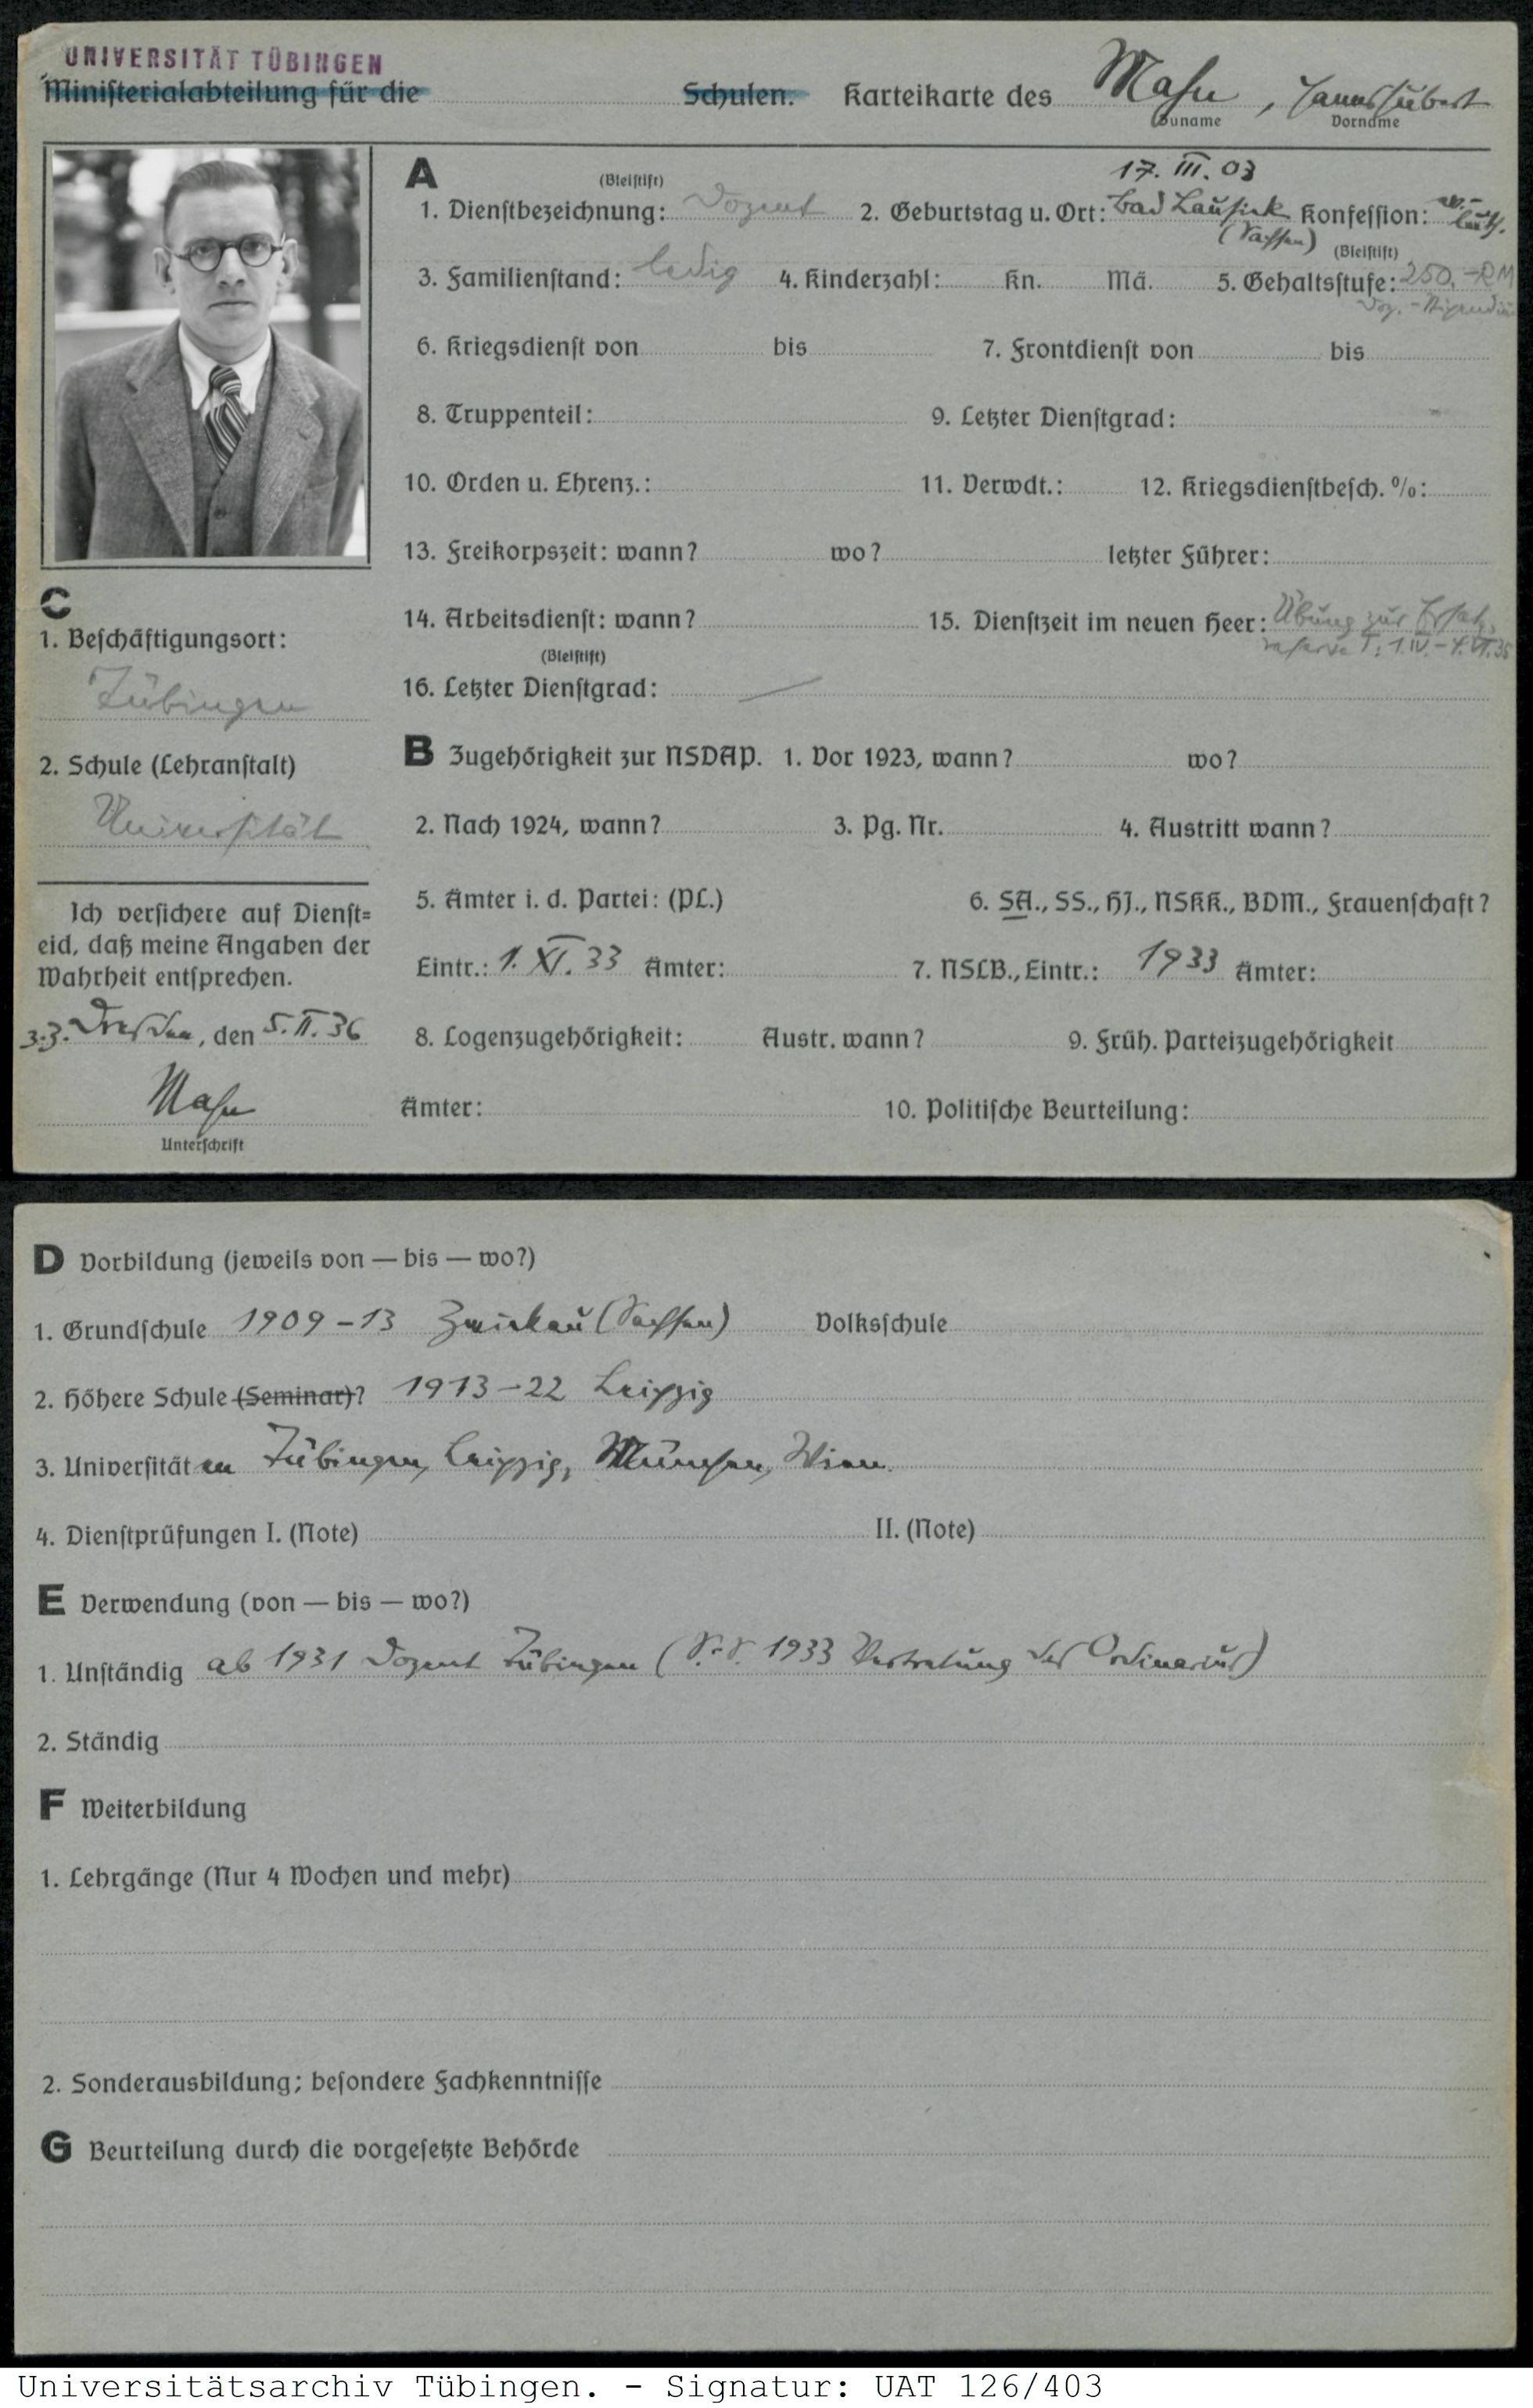 UNIVERSITÄT TÜBINGEN
Ministerialabteilung für die Schulen. Karteikarte des Mahn, Hannshubert
Zuname Vorname
A
17. III. 03
(Bleistift)
1. Dienstbezeichnung: Dozent 2. Geburtstag u. Ort: Bad Lausick Konfession: ev.-luth.
(Sachsen) (Bleistift)
3. Familienstand: ledig 4. Kinderzahl: Kn. Mä. 5. Gehaltsstufe: 250.-RM
Doz.-Stipendium
6. Kriegsdienst von bis 7. Frontdienst von bis
8. Truppenteil: 9. Letzter Dienstgrad:
10. Orden u. Ehrenz.: 11. Verwdt.: 12. Kriegsdienstbesch. %:
13. Freikorpszeit: wann? wo? letzter Führer:
14. Arbeitsdienst: wann? 15. Dienstzeit im neuen Heer: Übung zur Ersatz-
reserve I: 1.IV.-4.VI.35
(Bleistift)
16. Letzter Dienstgrad:
B Zugehörigkeit zur NSDAP. 1. Vor 1923, wann? wo?
2. Nach 1924, wann? 3. Pg. Nr. 4. Austritt wann?
5. Ämter i. d. Partei: (PL.) 6. SA., SS., HJ., NSKK., BDM., Frauenschaft?
Eintr.: 1. XI. 33 Ämter: 7. NSLB., Eintr.: 1933 Ämter:
8. Logenzugehörigkeit: Austr. wann? 9. Früh. Parteizugehörigkeit
Ämter: 10. Politische Beurteilung:
C
1. Beschäftigungsort:
Tübingen
2. Schule (Lehranstalt)
Universität
Ich versichere auf Dienst=
eid, daß meine Angaben der
Wahrheit entsprechen.
z.Z. Dresden, den 5. II. 36
Mahn
Unterschrift
D Vorbildung (jeweils von — bis — wo?)
1. Grundschule 1909-13 Zwickau (Sachsen) Volksschule
2. Höhere Schule (Seminar)? 1913-22 Leipzig
3. Universitäten Tübingen, Leipzig, München, Wien.
4. Dienstprüfungen I. (Note) II. (Note)
E Verwendung (von — bis — wo?)
1. Unständig ab 1931 Dozent Tübingen (S.S. 1933 Vertretung des Ordinarius)
2. Ständig
F Weiterbildung
1. Lehrgänge (Nur 4 Wochen und mehr)
2. Sonderausbildung; besondere Fachkenntnisse
G Beurteilung durch die vorgesetzte Behörde
Universitätsarchiv Tübingen. - Signatur: UAT 126/403